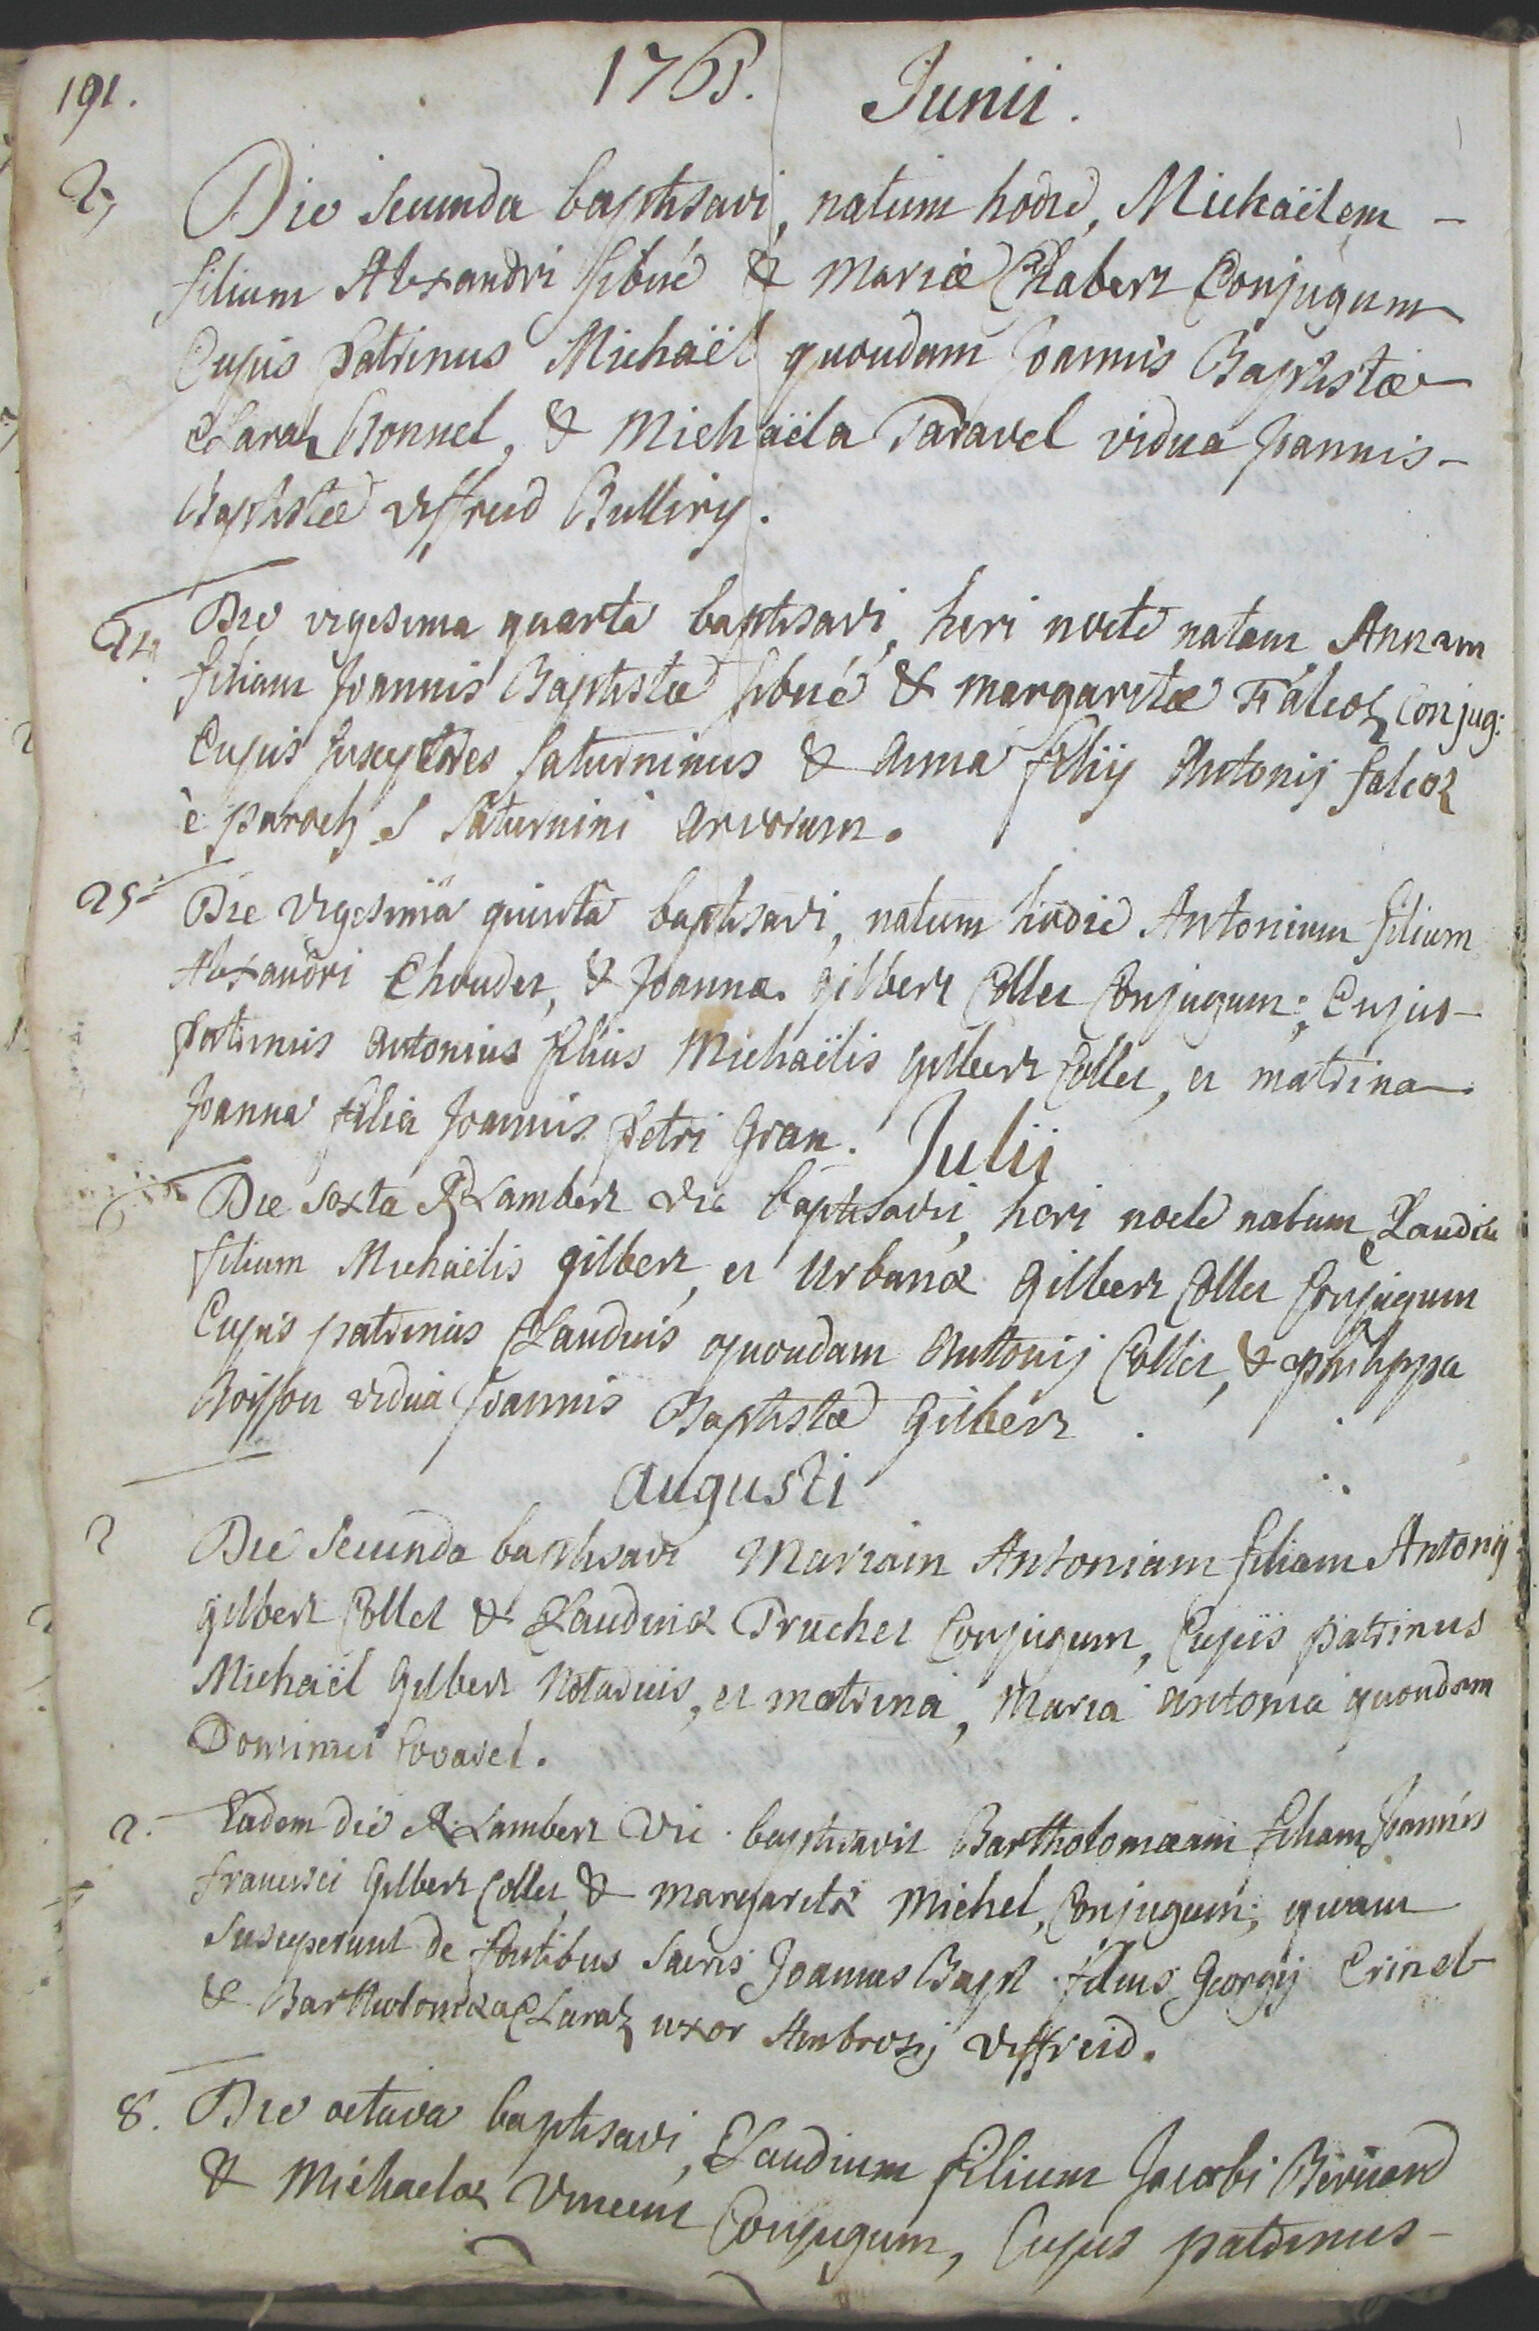 191. 1765. Junii.
2, Die secunda baptisavi, natum hodie, Michaëlem -
filium Alexandri Sibué & Mariæ Chabert Conjugum
Cujus Patrinus Michaël quondam Joannis Baptistæ
Claraz Bonnel, & Michaëla Taravel vidua Joannis-
Baptistæ Viffred Bulliry.
24. Die vigesima quarta baptisavi, heri nocte natam Annam
filiam Joannis Baptistæ Sibué & Margaritæ Falcoz Conjug:
Cujus susceptores Saturninus & Anna filij Antonij Falcoz
è paroch. S Saturnini Arvorum.
25. Die vigesimâ quintâ baptisavi, natum hodie Antonium filium
Alexandri Choudet, & Joannæ Gilbert Collet Conjugum; Cujus-
patrinus Antonius filius Michaëlis Gilbert Collet, et matrina
Joanna filia Joannis Petri Gran. Julij
6 Die sexta R Lambert Vic baptisavit, heri nocte natum Claudium
filium Michaëlis Gilbert, et Urbanæ Gilbert Collet Conjugum
Cujus patrinus Claudius quondam Antonij Collet, & Philippa
Boisson vidua Joannis Baptistæ Gilbert.
Augusti
2 Die Secunda baptisavi Mariam Antoniam filiam Antonij
Gilbert Collet & Claudinæ Truchet Conjugum, Cujus patrinus
Michaël Gilbert Notarius, et matrina, Maria Antonia quondam
Dominici
2. Eadem die R. Lambert Vic. baptisavit Bartholomæam filiam Joannis
Francisci Gilbert Collet & Margaritæ Michel, Conjugum; quam
susceperunt de fontibus Sacris Joannes Bapt. filius Georgij Crinel
& Bartholomæa Claraz uxor Ambrosij Viffreid.
8. Die octava baptisavi, Claudium filium Jacobi Bernard
& Michaelæ Vincent Conjugum, Cujus patrinus-